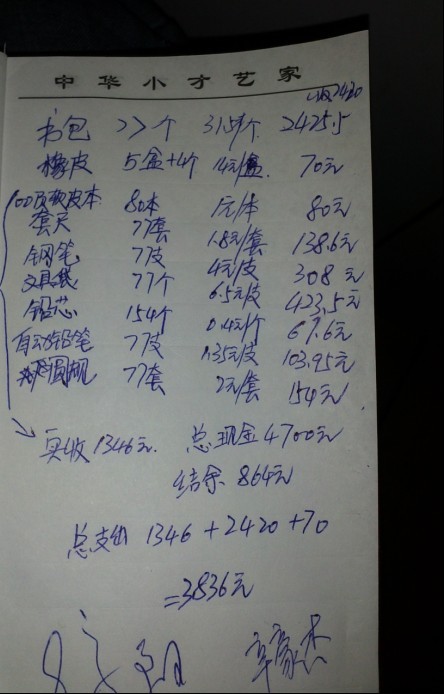 中华小才艺家
收2420
书包 77个 31.5/个 2425.5
橡皮 5盒+4个 14元/盒 70元
100页软皮本 80本 1元/本 80元
套尺 77套 1.8元/套 138.6元
钢笔 77支 4元/支 308元
文具袋 77个 6.5元/支 423.5元
铅芯 154个 0.4元/个 61.6元
自动铅笔 77支 1.35元/支 103.95元
圆规 77套 2元/套 154元
实收1346元. 总现金4700元
结余 864元
总支出 1346+2420+70
=3836元